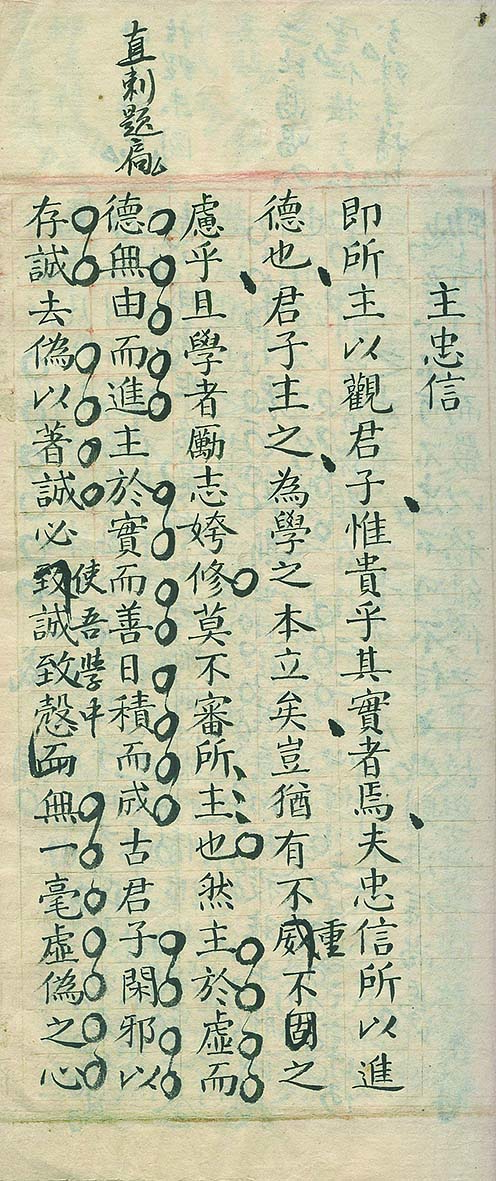 直刺題扃
主忠信
即所主以觀君子惟貴乎其實者焉夫忠信所以進
德也君子主之為學之本立矣豈猶有不威重不固之
慮乎且學者勵志姱修莫不審所主也然主於虛而
德無由而進主於實而善日積而成古君子閑邪以
存誠去偽以著誠必致誠致愨而無一毫虛偽之心
使吾學中